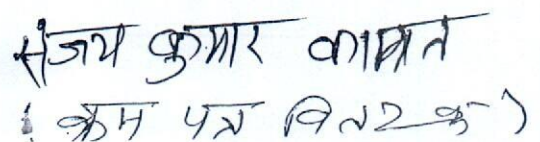 संजय कुमार कामत
( क्रम पत्र वितरक )